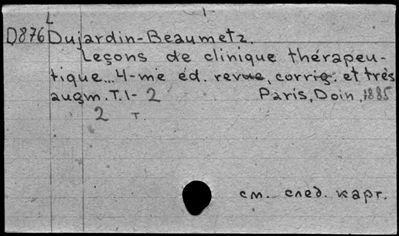 L
D876 Dujardin-Beaumetz.
Leçons de clinique thérapeu-
tique... 4-me éd. revue, corrig. et très
augm. T.1- 2 Paris, Doin, 1885
2 т.
см. след. карт.